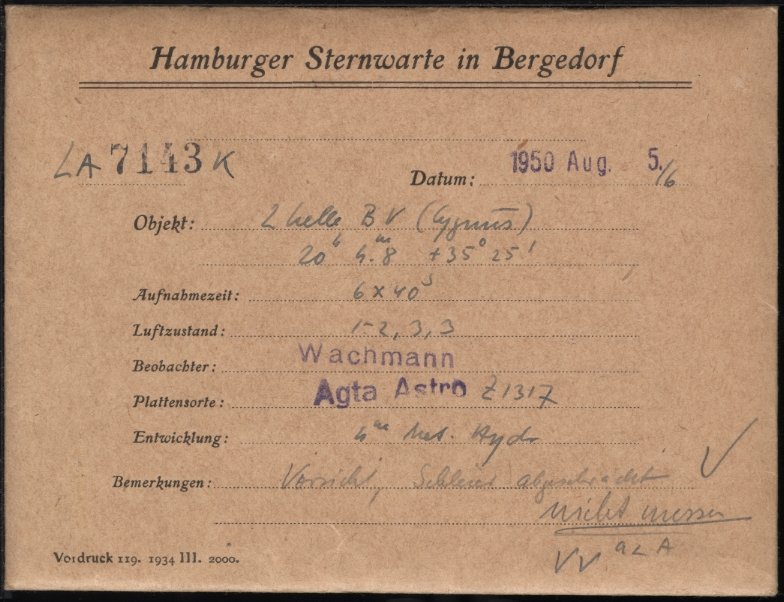 Hamburger Sternwarte in Bergedorf
LA 7143 K
Datum: 1950 Aug. 5./6
Objekt: 2 helle BV (Cygnus)
20h 4m.8 +35° 25'
Aufnahmezeit: 6 x 40s
Luftzustand: 1-2, 3, 3
Beobachter: Wachmann
Plattensorte: Agfa Astro Z1317
Entwicklung: 4m Met. Hydr
Bemerkungen: Vorsicht, abgeschwächt
nicht messen
Vordruck 119. 1934 III. 2000.